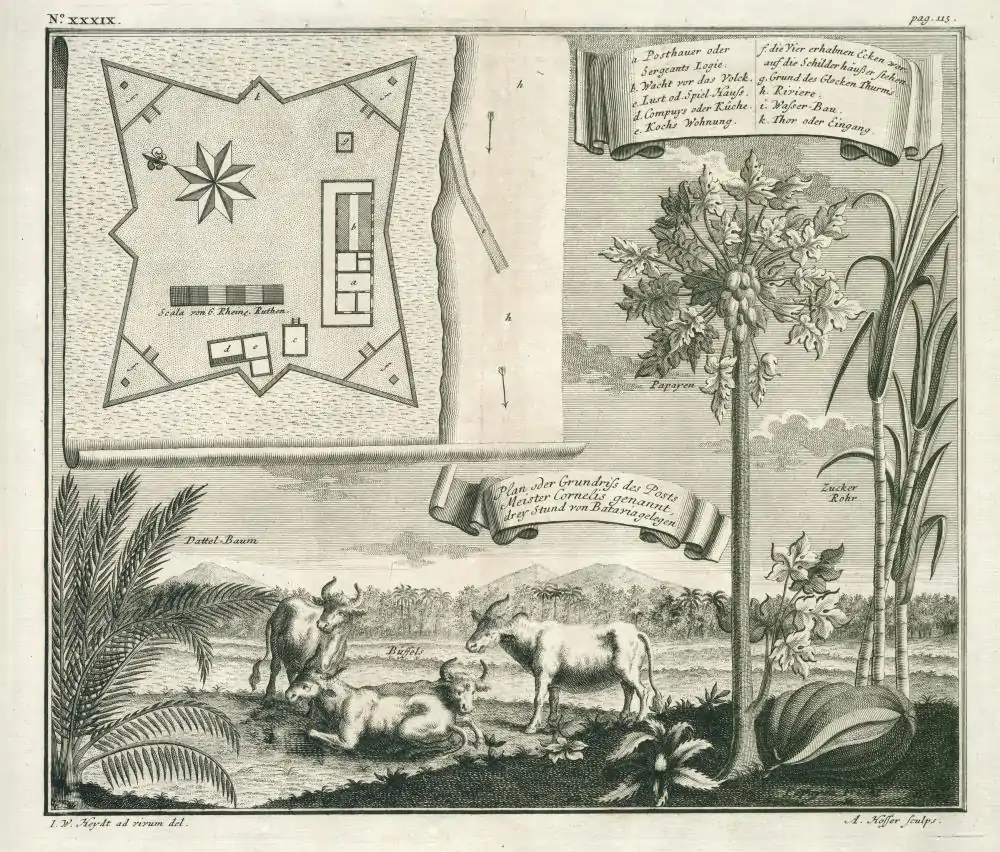 N.º XXXIX.
pag. 115.
a Posthauer oder
Sergeants Logie.
b. Wacht vor das Volck.
c. Lust od. Spiel-Hauſs.
d. Compuys oder Küche.
e. Kochs Wohnung.
f. die Vier erhabnen Ecken wor
auf die Schilderhäuſser stehen.
g. Grund des Glocken Thurms
h. Riviere.
i. Waſser-Bau.
k. Thor oder Eingang.
k
h
f
f
g
i
b
a
Scala von 6. Rheinl. Ruthen.
h
d
e
c
f
f
Papayen
Zucker
Rohr
Plan oder Grundriſs des Posts
Meister Cornelis genannt,
drey Stund von Batavia gelegen
Dattel-Baum
Büffols
I. W. Heydt ad vivum del.
A. Hoffer sculps.